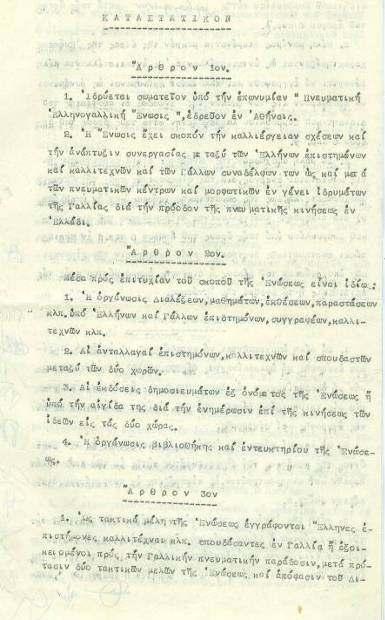 ΚΑΤΑΣΤΑΤΙΚΟΝ
Ἄρθρον 1ον.
1. Ἱδρύεται σωματεῖον ὑπό τήν ἐπωνυμίαν " Πνευματική
Ἑλληνογαλλική Ἕνωσις ",ἑδρεῦον ἐν Ἀθήναις.
2. Ἡ Ἕνωσις ἔχει σκοπόν τήν καλλιέργειαν σχέσεων καί
τήν ἀνάπτυξιν συνεργασίας μεταξύ τῶν Ἑλλήνων ἐπιστημόνων
καί καλλιτεχνῶν καί τῶν Γάλλων συναδέλφων των ὡς καί μετά
τῶν πνευματικῶν κέντρων καί μορφωτικῶν ἐν γένει ἱδρυμάτων
τῆς Γαλλίας διά τήν πρόοδον τῆς πνευματικῆς κινήσεως ἐν
Ἑλλάδι.
Ἄρθρον 2ον.
Μέσα πρός ἐπιτυχίαν τοῦ σκοποῦ τῆς Ἑνώσεως εἶναι ἰδίως:
1. Ἡ ὀργάνωσις διαλέξεων,μαθημάτων,ἐκθέσεων,παραστάσεων
κλπ.ὑπό Ἑλλήνων καί Γάλλων ἐπιστημόνων,συγγραφέων,καλλι-
τεχνῶν κλπ.
2. Αἱ ἀνταλλαγαί ἐπιστημόνων,καλλιτεχνῶν καί σπουδαστῶν
μεταξύ τῶν δύο χωρῶν.
3. Αἱ ἐκδόσεις δημοσιευμάτων ἐξ ὀνόματος τῆς Ἑνώσεως ἤ
ὑπό τήν αἰγίδα της διά τήν ἐνημέρωσιν ἐπί τῆς κινήσεως τῶν
ἰδεῶν εἰς τάς δύο χώρας.
4. Ἡ ὀργάνωσις βιβλιοθήκης καί ἐντευκτηρίου τῆς Ἑνώσε-
ως.
Ἄρθρον 3ον
1. Ὡς τακτικά μέλη τῆς Ἑνώσεως ἐγγράφονται Ἕλληνες ἐ-
πιστήμονες καλλιτέχναι κλπ. σπουδάσαντες ἐν Γαλλίᾳ ἤ ἐξοι-
κειωμένοι πρός τήν Γαλλικήν πνευματικήν παράδοσιν,μετά πρό-
τασιν δύο τακτικῶν μελῶν τῆς Ἑνώσεως καί ἀπόφασιν τοῦ Δι-